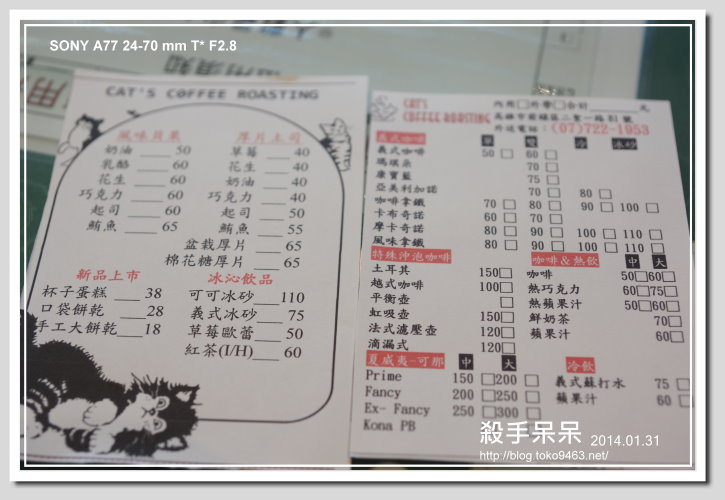 SONY A77 24-70 mm T* F2.8
CAT'S COFFEE ROASTING
風味貝果
奶油 50
乳酪 60
花生 60
巧克力 60
起司 60
鮪魚 65
厚片土司
草莓 40
花生 40
奶油 40
巧克力 40
起司 50
鮪魚 55
盆栽厚片 65
棉花糖厚片 65
新品上市
杯子蛋糕 38
口袋餅乾 28
手工大餅乾 18
冰沁飲品
可可冰砂 110
義式冰砂 75
草莓歐蕾 50
紅茶(I/H) 60
CAT'S
COFFEE ROASTING
內用□外帶□合計 元
外送電話：(07)722-1953
義式咖啡 單 雙 冷 冰砂
義式咖啡 50□ 60□
瑪琪朵 70□
康寶藍 75□
亞美利加諾 70□ 80□
咖啡拿鐵 70□ 80□ 90□ 100□
卡布奇諾 60□ 70□
摩卡奇諾 80□ 90□ 100□ 110□
風味拿鐵 80□ 90□ 100□ 110□
特殊沖泡咖啡
土耳其 150□
越式咖啡 100□
平衡壺 □
虹吸壺 150□
法式濾壓壺 120□
滴漏式 120□
咖啡&熱飲 中 大
咖啡 50□60□
熱巧克力 60□75□
熱蘋果汁 50□60□
鮮奶茶 70□
蘋果汁 60□
夏威夷-可那 中 大
Prime 150□200□
Fancy 200□250□
Ex- Fancy 250□300□
Kona PB
冷飲
義式蘇打水 75□
蘋果汁 60□
殺手呆呆 2014.01.31
http://blog.toko9463.net/